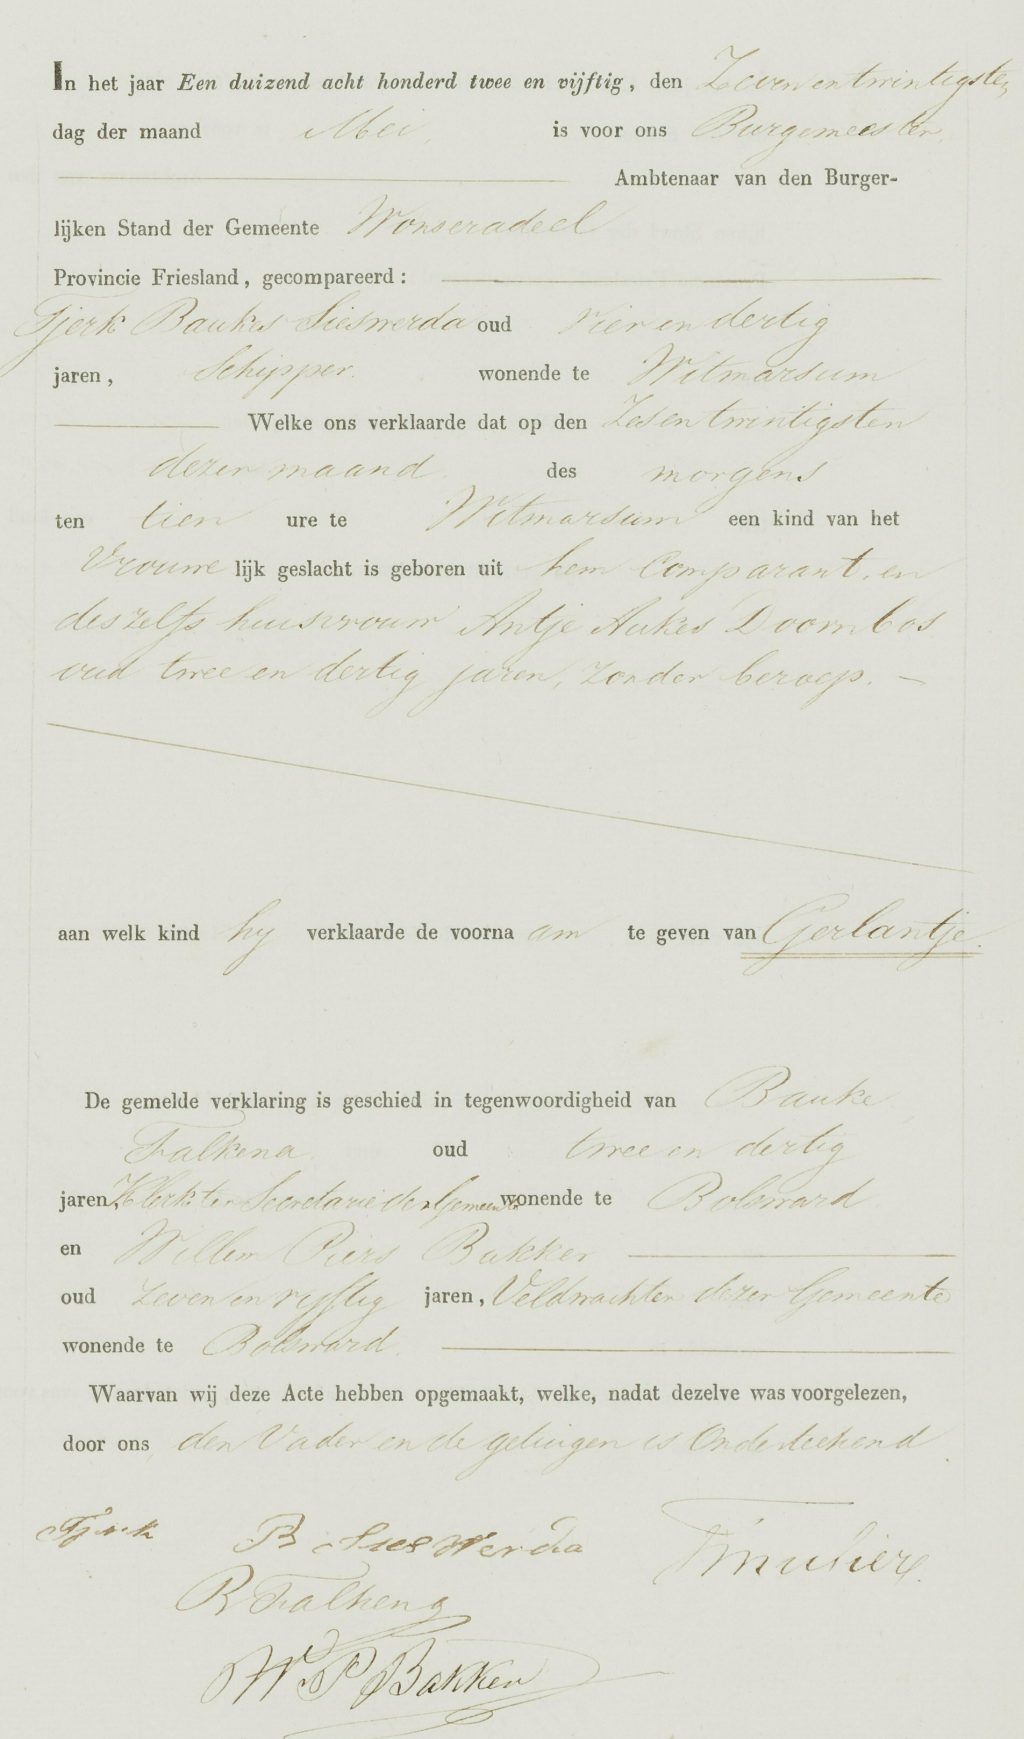 In het jaar Een duizend acht honderd twee en vijftig, den Zeven en twintigsten
dag der maand Mei, is voor ons Burgemeester,
Ambtenaar van den Burger-
lijken Stand der Gemeente Wonseradeel
Provincie Friesland, gecompareerd:
Tjerk Baukes Sieswerda oud vier en dertig
jaren, Schipper. wonende te Witmarsum
Welke ons verklaarde dat op den Zes en twintigsten
dezer maand des morgens
ten tien ure te Witmarsum een kind van het
Vrouwe lijk geslacht is geboren uit hem Comparant, en
deszelfs huisvrouw Antje Aukes Doornbos
oud twee en dertig jaren, zonder beroep. —
aan welk kind hy verklaarde de voorna am te geven van Gerlantje.
De gemelde verklaring is geschied in tegenwoordigheid van Bauke
Falkena oud twee en dertig
jaren, Klerk ter Secretarie der Gemeente wonende te Bolsward
en Willem Piers Bakker
oud zeven en vyftig jaren, Veldwachter dezer Gemeente
wonende te Bolsward.
Waarvan wij deze Acte hebben opgemaakt, welke, nadat dezelve was voorgelezen,
door ons, den Vader en de getuigen is Onderteekend.
Tjerk B Sieswerda
B Falkena
W. P. Bakker